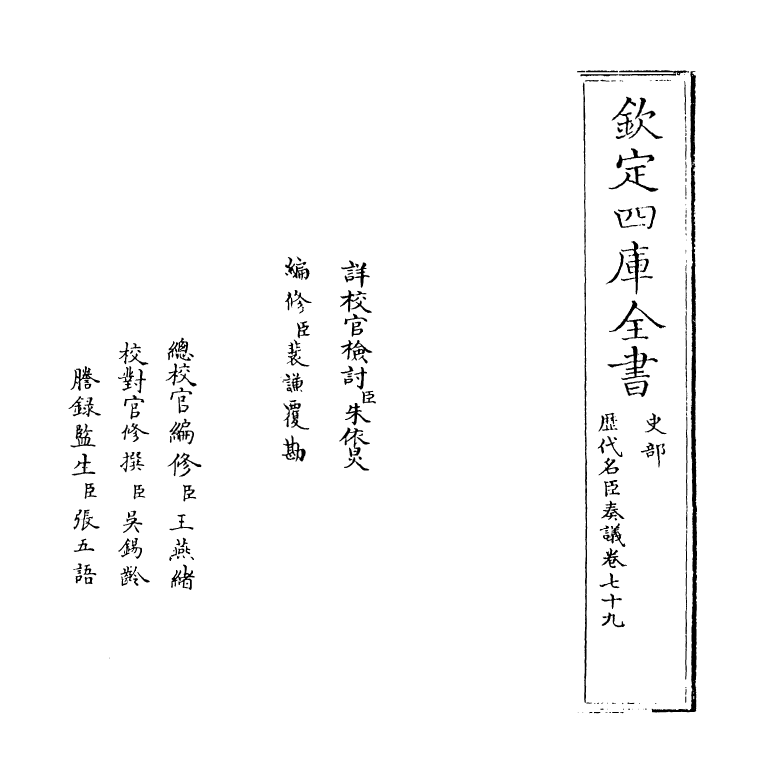 欽定四庫全書
史部
歴代名臣奏議卷七十九
詳校官檢討臣朱依炅
編修臣裴謙覆勘
總校官編修臣王燕緒
校對官修撰臣吳錫齡
謄錄監生臣張五語